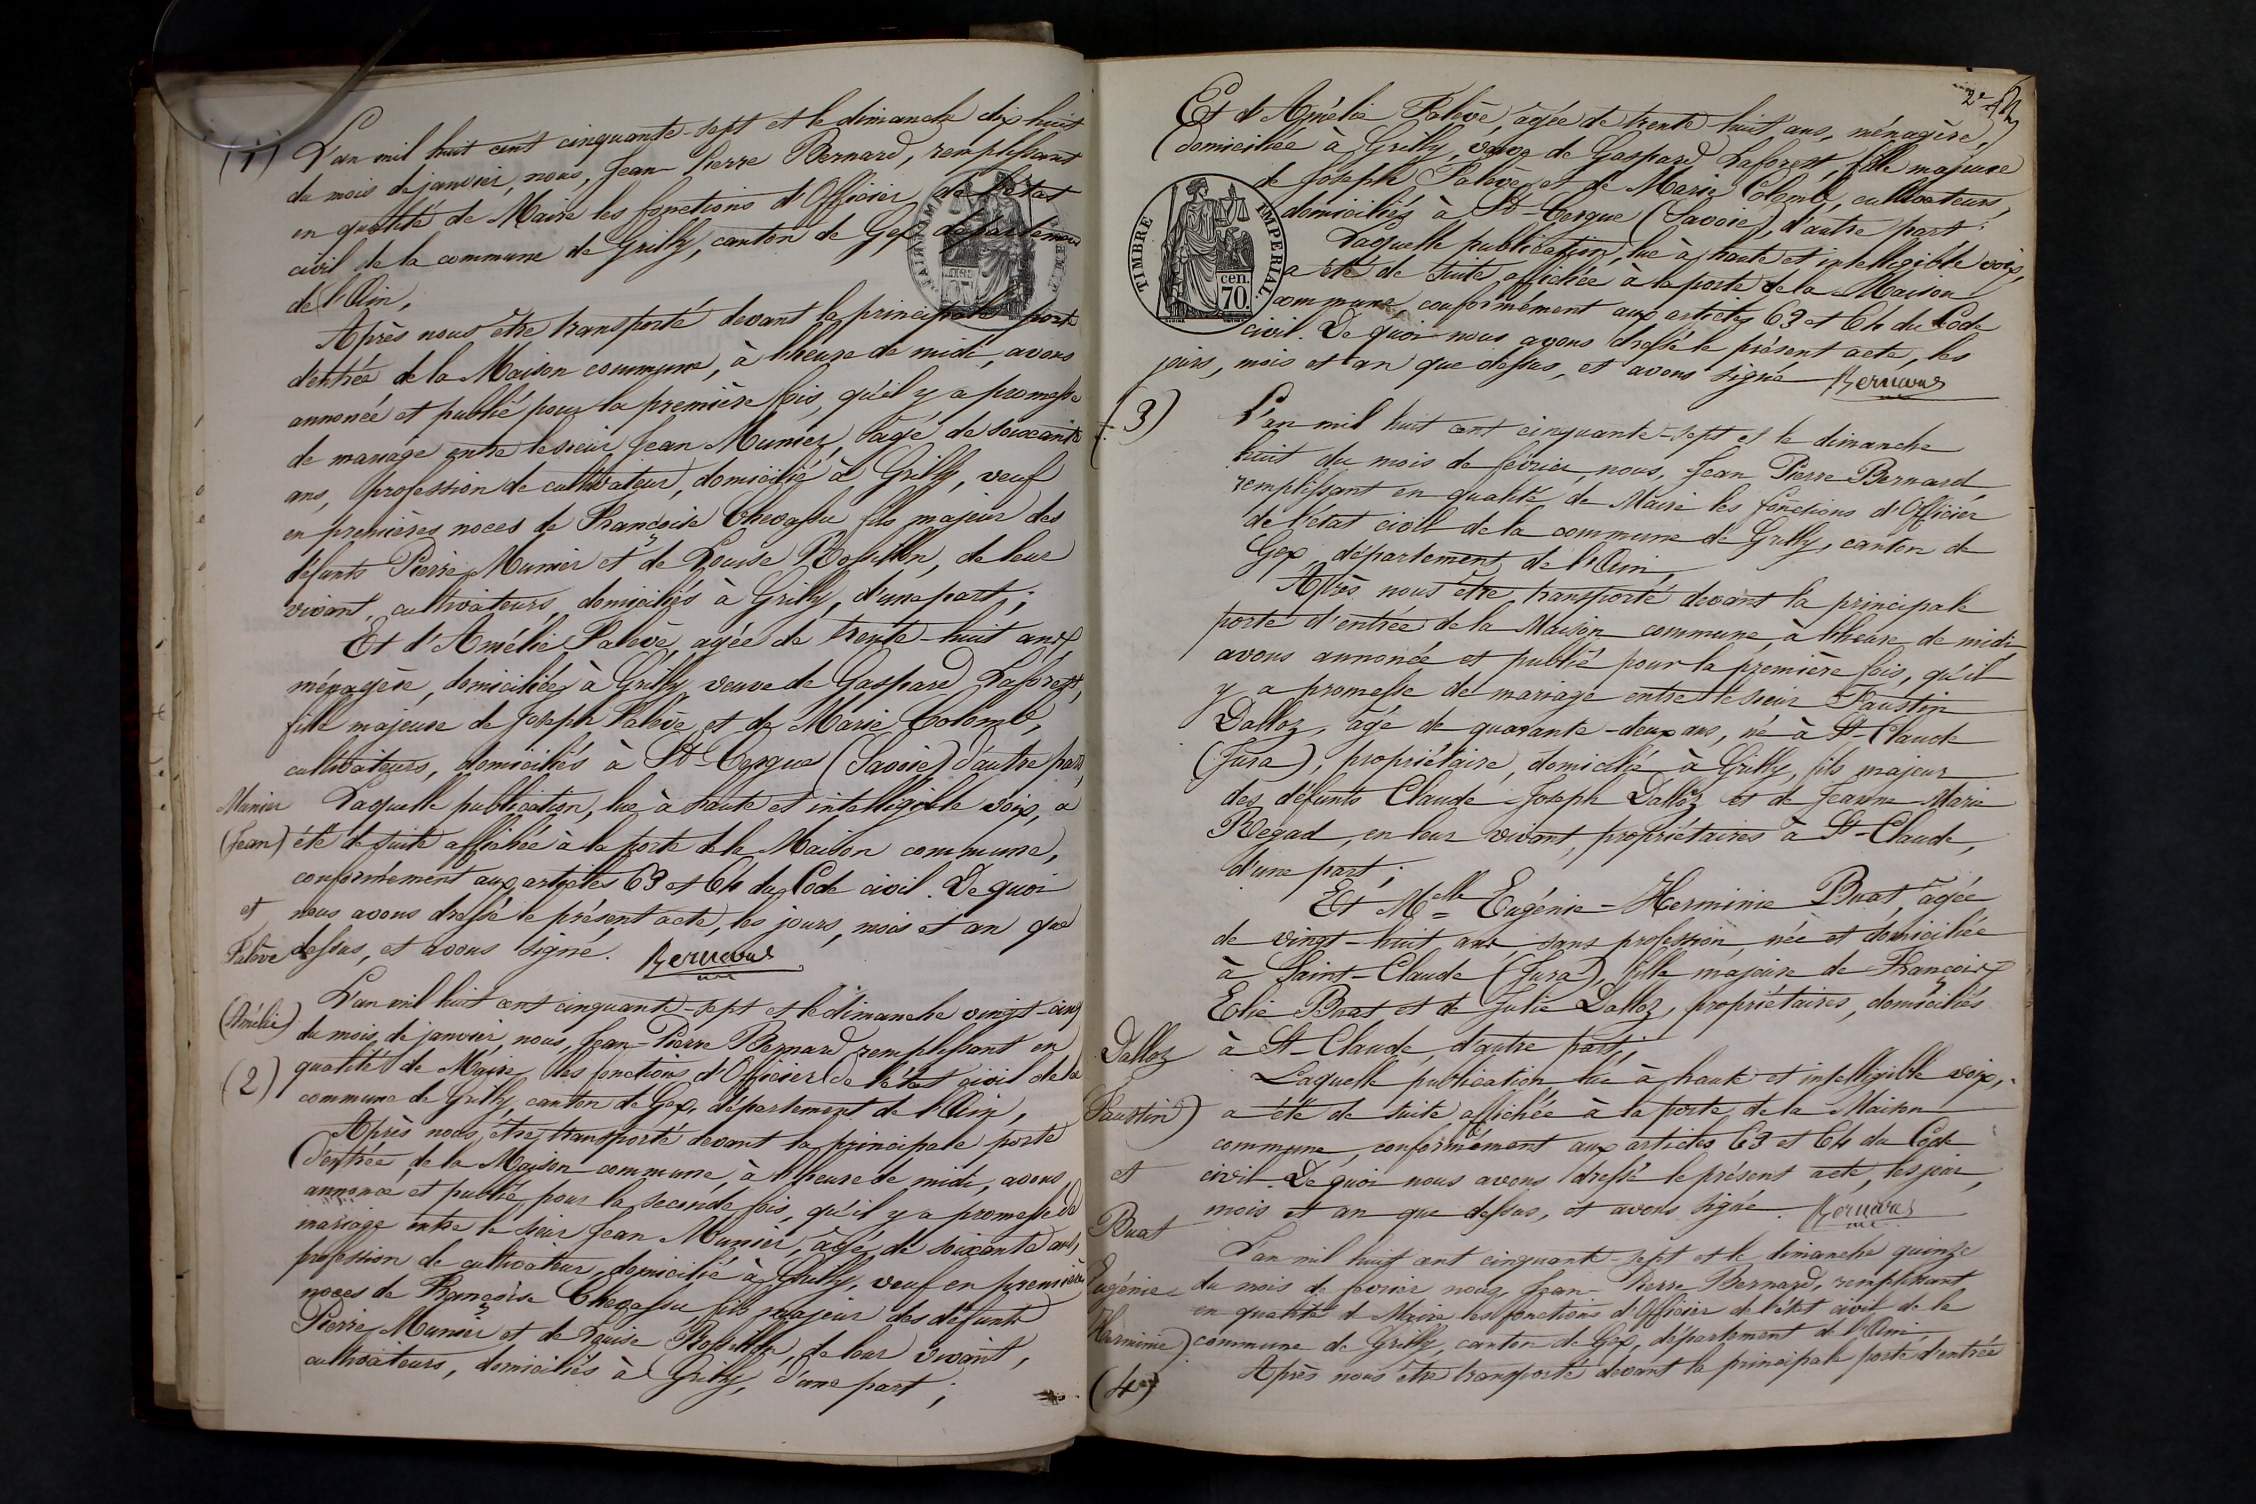 (1)
L'an mil huit cent cinquante-sept et le dimanche dix huit
du mois de janvier, nous, Jean Pierre Bernard, remplissant
en qualité de Maire les fonctions d'Officier de l'état
civil de la commune de Grilly, canton de Gex département
de l'Ain,
Après nous être transporté devant la principale porte
d'entrée de la Maison commune, à l'heure de midi, avons
annoncé et publié pour la première fois, qu'il y a promesse
de mariage entre le sieur Jean Munier, âgé de soixante
ans, profession de cultivateur, domicilié à Grilly, veuf
en premières noces de Françoise Chevassu fils majeur des
défunts Pierre Munier et de Louise Rosillon, de leur
vivant cultivateurs domiciliés à Grilly, d'une part;
Et d'Amélie Falève, agée de trente-huit ans,
ménagère, domiciliée à Grilly veuve de Gaspard Laforest,
fille majeure de Joseph Falève et de Marie Colomb,
cultivateurs, domiciliés à St-Cergue (Savoie) d'autre part,
Laquelle publication, lue à haute et intelligible voix, a
été de suite affichée à la porte de la Maison commune,
conformément aux articles 63 et 64 du Code civil. De quoi
nous avons dressé le présent acte, les jours, mois et an que
dessus, et avons signé. Bernard
Munier
(Jean)
et
Falève
(Amélie)
(2)
L'an mil huit cent cinquante-sept et le dimanche vingt-cinq
du mois de janvier, nous, Jean-Pierre Bernard remplissant en
qualité de Maire les fonctions d'Officier de l'état civil de la
commune de Grilly, canton de Gex, département de l'Ain,
Après nous être transporté devant la principale porte
d'entrée de la Maison commune, à l'heure de midi, avons
annoncé et publié pour la seconde fois, qu'il y a promesse de
mariage entre le sieur Jean Munier, âgé de soixante ans,
profession de cultivateur, domicilié à Grilly, veuf en premières
noces de Françoise Chevassu, fils majeur des défunts
Pierre Munier et de Louise Rosillon, de leur vivant,
cultivateurs, domiciliés à Grilly, d'une part;
2e
Et d'Amélie Falève, âgée de trente huit ans, ménagère,
domiciliée à Grilly, veuve de Gaspard Laforest, fille majeure
de Joseph Falève et de Marie Colomb, cultivateurs,
domiciliés à St-Cergue (Savoie), d'autre part;
Laquelle publication, lue à haute et intelligible voix,
a été de suite affichée à la porte de la Maison
commune conformément aux articles 63 et 64 du Code
civil. De quoi nous avons dressé le présent acte, les
jours, mois et an que dessus, et avons signé Bernard
TIMBRE IMPERIAL.
cen.
70.
(3)
L'an mil huit cent cinquante-sept et le dimanche
huit du mois de février, nous, Jean Pierre Bernard,
remplissant en qualité de Maire les fonctions d'Officier
de l'état civil de la commune de Grilly, canton de
Gex, département de l'Ain,
Après nous être transporté devant la principale
porte d'entrée de la Maison commune, à l'heure de midi
avons annoncé et publié pour la première fois, qu'il
y a promesse de mariage entre le sieur Faustin
Dalloz, âgé de quarante-deux ans, né à St-Claude
(Jura), propriétaire, domicilié à Grilly, fils majeur
des défunts Claude Joseph Dalloz et de Jeanne Marie
Regad, en leur vivant, propriétaires à St-Claude,
d'une part;
Et Melle Eugénie-Herminie Buat, âgée
de vingt-huit ans, sans profession, née et domiciliée
à Saint-Claude (Jura), fille majeure de François
Elie Buat et de Julie Dalloz, propriétaires, domiciliés
à St-Claude, d'autre part;
Laquelle publication lue à haute et intelligible voix,
a été de suite affichée à la porte de la Maison
commune, conformément aux articles 63 et 64 du Code
civil. De quoi nous avons dressé le présent acte, les jour,
mois et an que dessus, et avons signé. Bernard
Dalloz
(Faustin)
et
Buat
Eugénie
Herminie)
(4)
L'an mil huit cent cinquante-sept et le dimanche quinze
du mois de février nous, Jean-Pierre Bernard, remplissant
en qualité de Maire les fonctions d'Officier de l'état civil de la
commune de Grilly, canton de Gex, département de l'Ain
Après nous être transporté devant la principale porte d'entrée